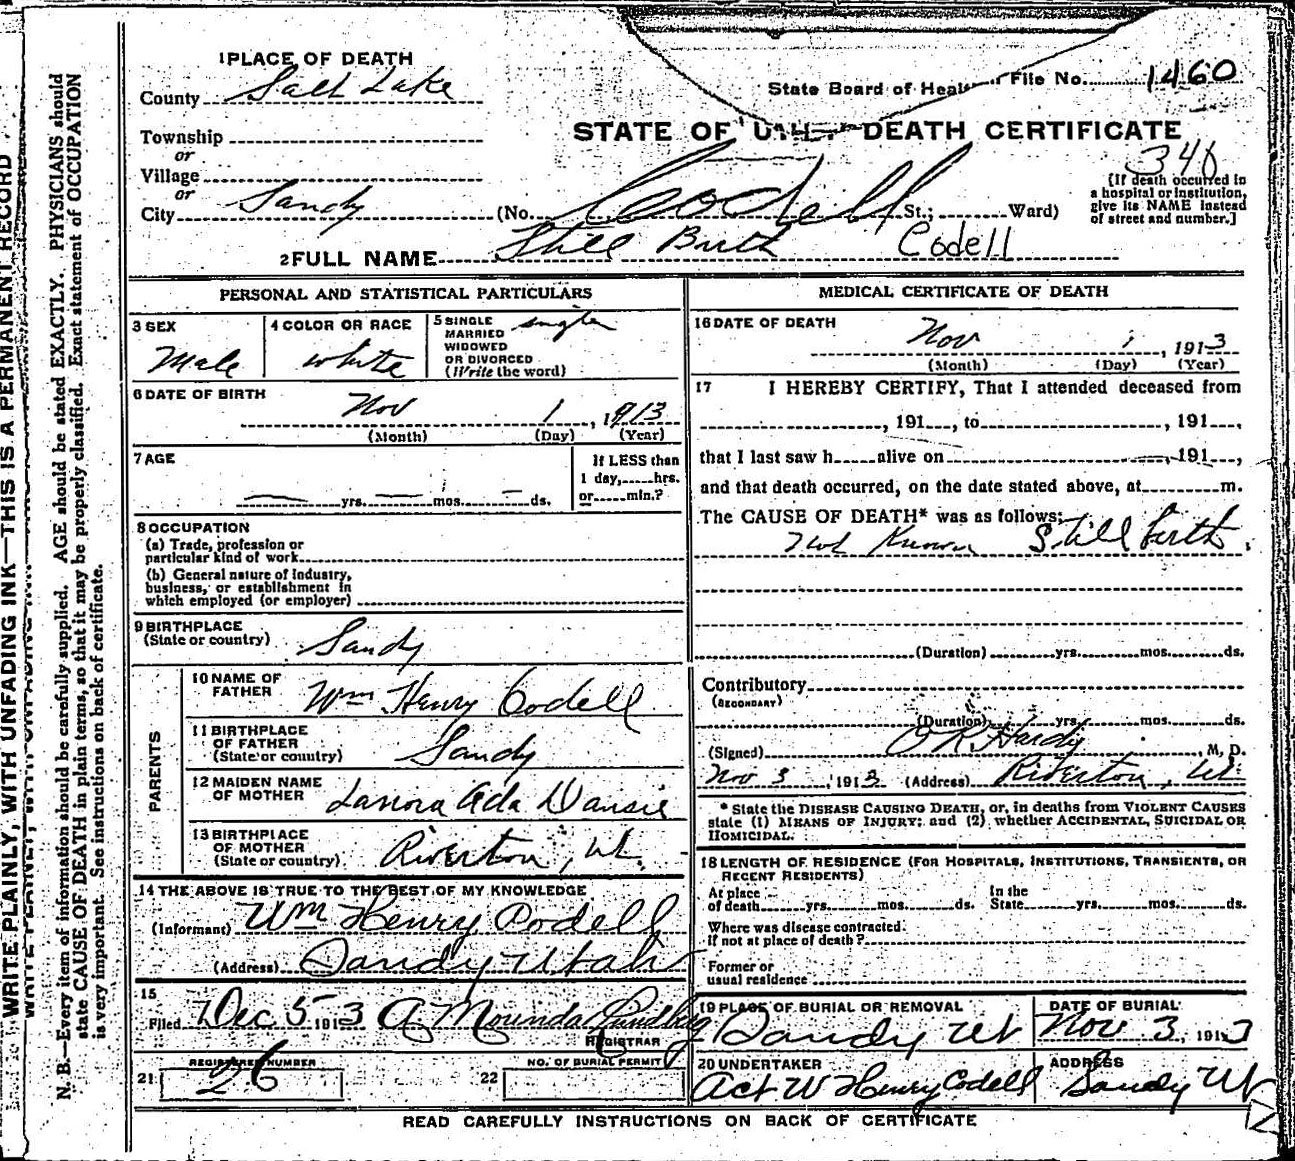 1 PLACE OF DEATH
County Salt Lake
Township
or
Village
or
City Sandy (No. St.; Ward)
State Board of Health File No. 1460
STATE OF UTAH DEATH CERTIFICATE
Codell
340
[If death occurred in
a hospital or institution,
give its NAME instead
of street and number.]
2 FULL NAME Still Birth Codell
PERSONAL AND STATISTICAL PARTICULARS
3 SEX
Male
4 COLOR OR RACE
white
5 SINGLE
MARRIED
WIDOWED
OR DIVORCED
(Write the word)
single
6 DATE OF BIRTH
Nov 1, 1913
(Month) (Day) (Year)
7 AGE
— yrs. — mos. — ds.
If LESS than
1 day,.....hrs.
or.....min.?
8 OCCUPATION
(a) Trade, profession or
particular kind of work
(b) General nature of industry,
business, or establishment in
which employed (or employer)
9 BIRTHPLACE
(State or country) Sandy
PARENTS
10 NAME OF
FATHER Wm Henry Codell
11 BIRTHPLACE
OF FATHER
(State or country) Sandy
12 MAIDEN NAME
OF MOTHER Lanora Ada Dansie
13 BIRTHPLACE
OF MOTHER
(State or country) Riverton, Ut.
14 THE ABOVE IS TRUE TO THE BEST OF MY KNOWLEDGE
(Informant) Wm Henry Codell
(Address) Sandy Utah
15
Filed Dec 5 1913 A Mounda
REGISTRAR
REGISTERED NUMBER
21 26
NO. OF BURIAL PERMIT
22
MEDICAL CERTIFICATE OF DEATH
16 DATE OF DEATH
Nov 1, 1913
(Month) (Day) (Year)
17 I HEREBY CERTIFY, That I attended deceased from
, 191 , to , 191 ,
that I last saw h alive on , 191 ,
and that death occurred, on the date stated above, at m.
The CAUSE OF DEATH* was as follows:
Not Known Still birth.
(Duration) yrs. mos. ds.
Contributory
(SECONDARY)
(Duration) yrs. mos. ds.
(Signed) O R Hardy, M. D.
Nov 3, 1913 (Address) Riverton, Ut
* State the DISEASE CAUSING DEATH, or, in deaths from VIOLENT CAUSES
state (1) MEANS OF INJURY; and (2) whether ACCIDENTAL, SUICIDAL OR
HOMICIDAL.
18 LENGTH OF RESIDENCE (FOR HOSPITALS, INSTITUTIONS, TRANSIENTS, OR
RECENT RESIDENTS)
At place
of death yrs. mos. ds.
In the
State yrs. mos. ds.
Where was disease contracted.
If not at place of death?
Former or
usual residence
19 PLACE OF BURIAL OR REMOVAL
Sandy Ut
DATE OF BURIAL
Nov 3, 1913
20 UNDERTAKER
Act W Henry Codell
ADDRESS
Sandy Ut
READ CAREFULLY INSTRUCTIONS ON BACK OF CERTIFICATE
WRITE PLAINLY, WITH UNFADING INK—THIS IS A PERMANENT RECORD
N. B.—Every item of information should be carefully supplied. AGE should be stated EXACTLY. PHYSICIANS should
state CAUSE OF DEATH in plain terms, so that it may be properly classified. Exact statement of OCCUPATION
is very important. See instructions on back of certificate.